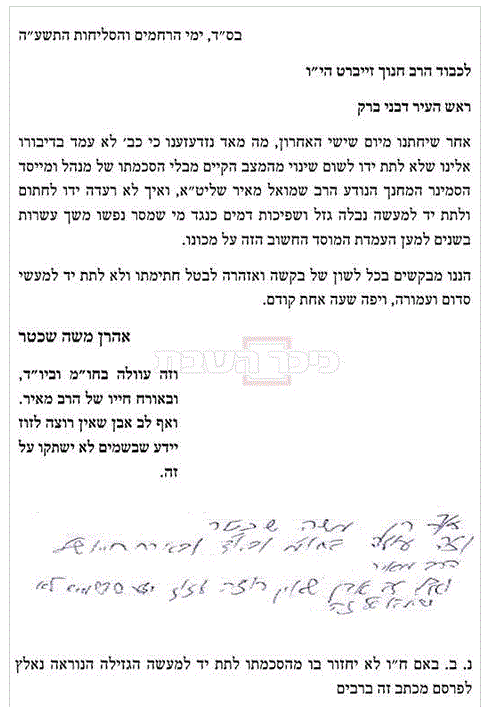 בס״ד, ימי הרחמים והסליחות התשע״ה
לכבוד הרב חנוך זייברט הי״ו
ראש העיר דבני ברק
אחר שיחתנו מיום שישי האחרון, מה מאד נזדעזענו כי כב׳ לא עמד בדיבורו
אלינו שלא לתת ידו לשום שינוי מהמצב הקיים מבלי הסכמתו של מנהל ומייסד
הסמינר המחנך הנודע הרב שמואל מאיר שליט״א, ואיך לא רעדה ידו לחתום
ולתת יד למעשה נבלה גזל ושפיכות דמים כנגד מי שמסר נפשו משך עשרות
בשנים למען העמדת המוסד החשוב הזה על מכונו.
הננו מבקשים בכל לשון של בקשה ואזהרה לבטל חתימתו ולא לתת יד למעשי
סדום ועמורה, ויפה שעה אחת קודם.
אהרן משה שכטר
כיכר השבת
וזה עוולה בחו״מ וביו״ד,
ובאורח חייו של הרב מאיר.
ואף לב אבן שאין רוצה לזוז
יידע שבשמים לא ישתקו על
זה.
אהרן משה שכטר
וזה עוולה בחו״מ וביו״ד ובאורח חייו של
הרב מאיר
ואף לב אבן שאין רוצה לזוז ידע שבשמים לא
ישתקו על זה
נ. ב. באם ח״ו לא יחזור בו מהסכמתו לתת יד למעשה הגזילה הנוראה נאלץ
לפרסם מכתב זה ברבים